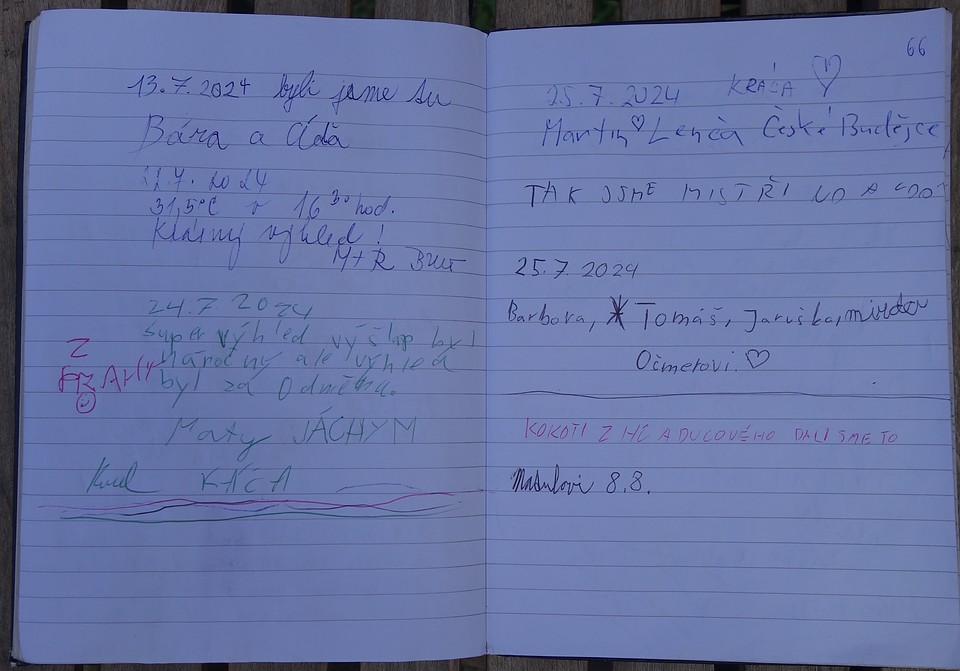 13.7.2024 byli jsme tu
Bára a Aďa
7. 2024
31,5°C v 16 30 hod.
Krásný výhled!
M+R
24.7 2024
Super výhled, výšlap byl
Náročný ale výhled
byl za Odměna.
Z
PRAHY
Maty JÁCHYM
Karel KÁČA
66
25.7.2024 KRÁĆA ♡
Martin ♡ Lenča České Budějce
TAK JSME MISTŘI
25.7 2024
Barbora, Tomáš, Jaruška,
Očmetovi. ♡
KOKOTI Z DALI SME TO
8.8.